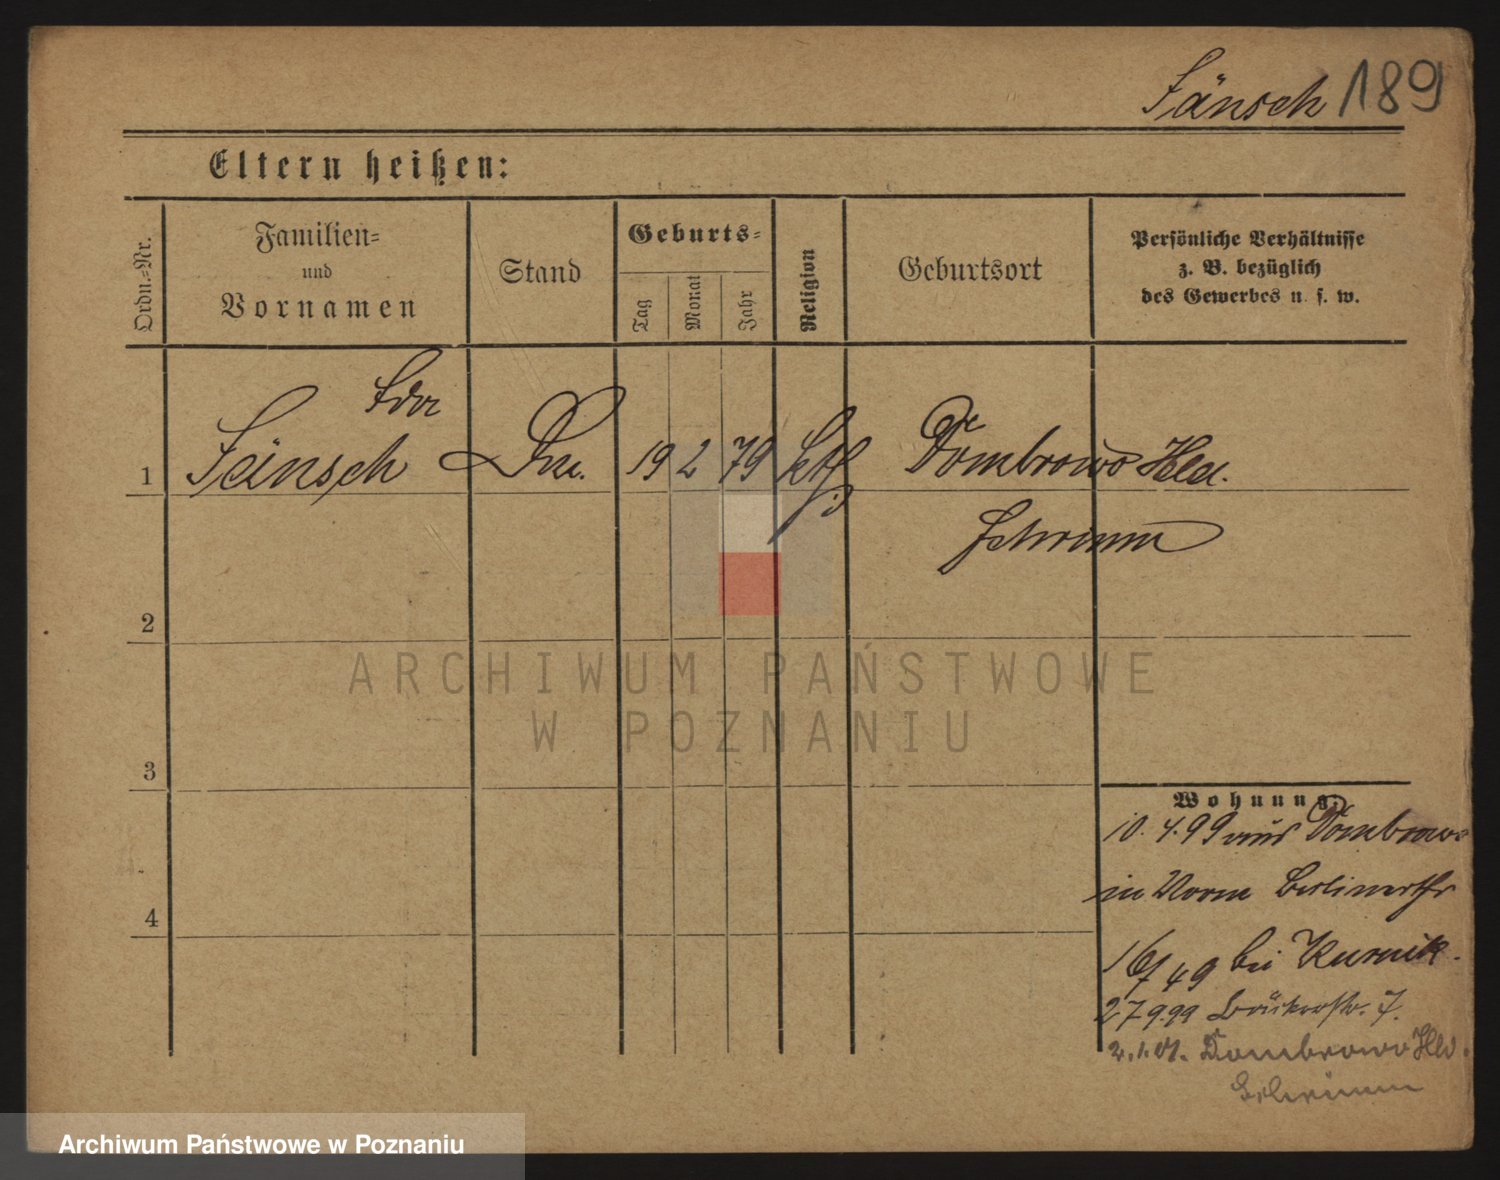 Jänsch 189
Eltern heißen:
Ordn.-Nr.
Familien-
und
Vornamen
Stand
Geburts-
Tag
Monat
Jahr
Religion
Geburtsort
Persönliche Verhältnisse
z. B. bezüglich
des Gewerbes u. s. w.
Ida
1 Jänsch 19 2 79 kth. Dombrowo Hld.
Schrimm
2
ARCHIWUM PAŃSTWOWE
W POZNANIU
3
Wohnung:
10. 4. 99 aus Dombrowo
in Berlinerstr
4
bei Kurnik.
27 9.99 7.
2.1.01. Dombrowo Hld.
Schrimm
Archiwum Państwowe w Poznaniu